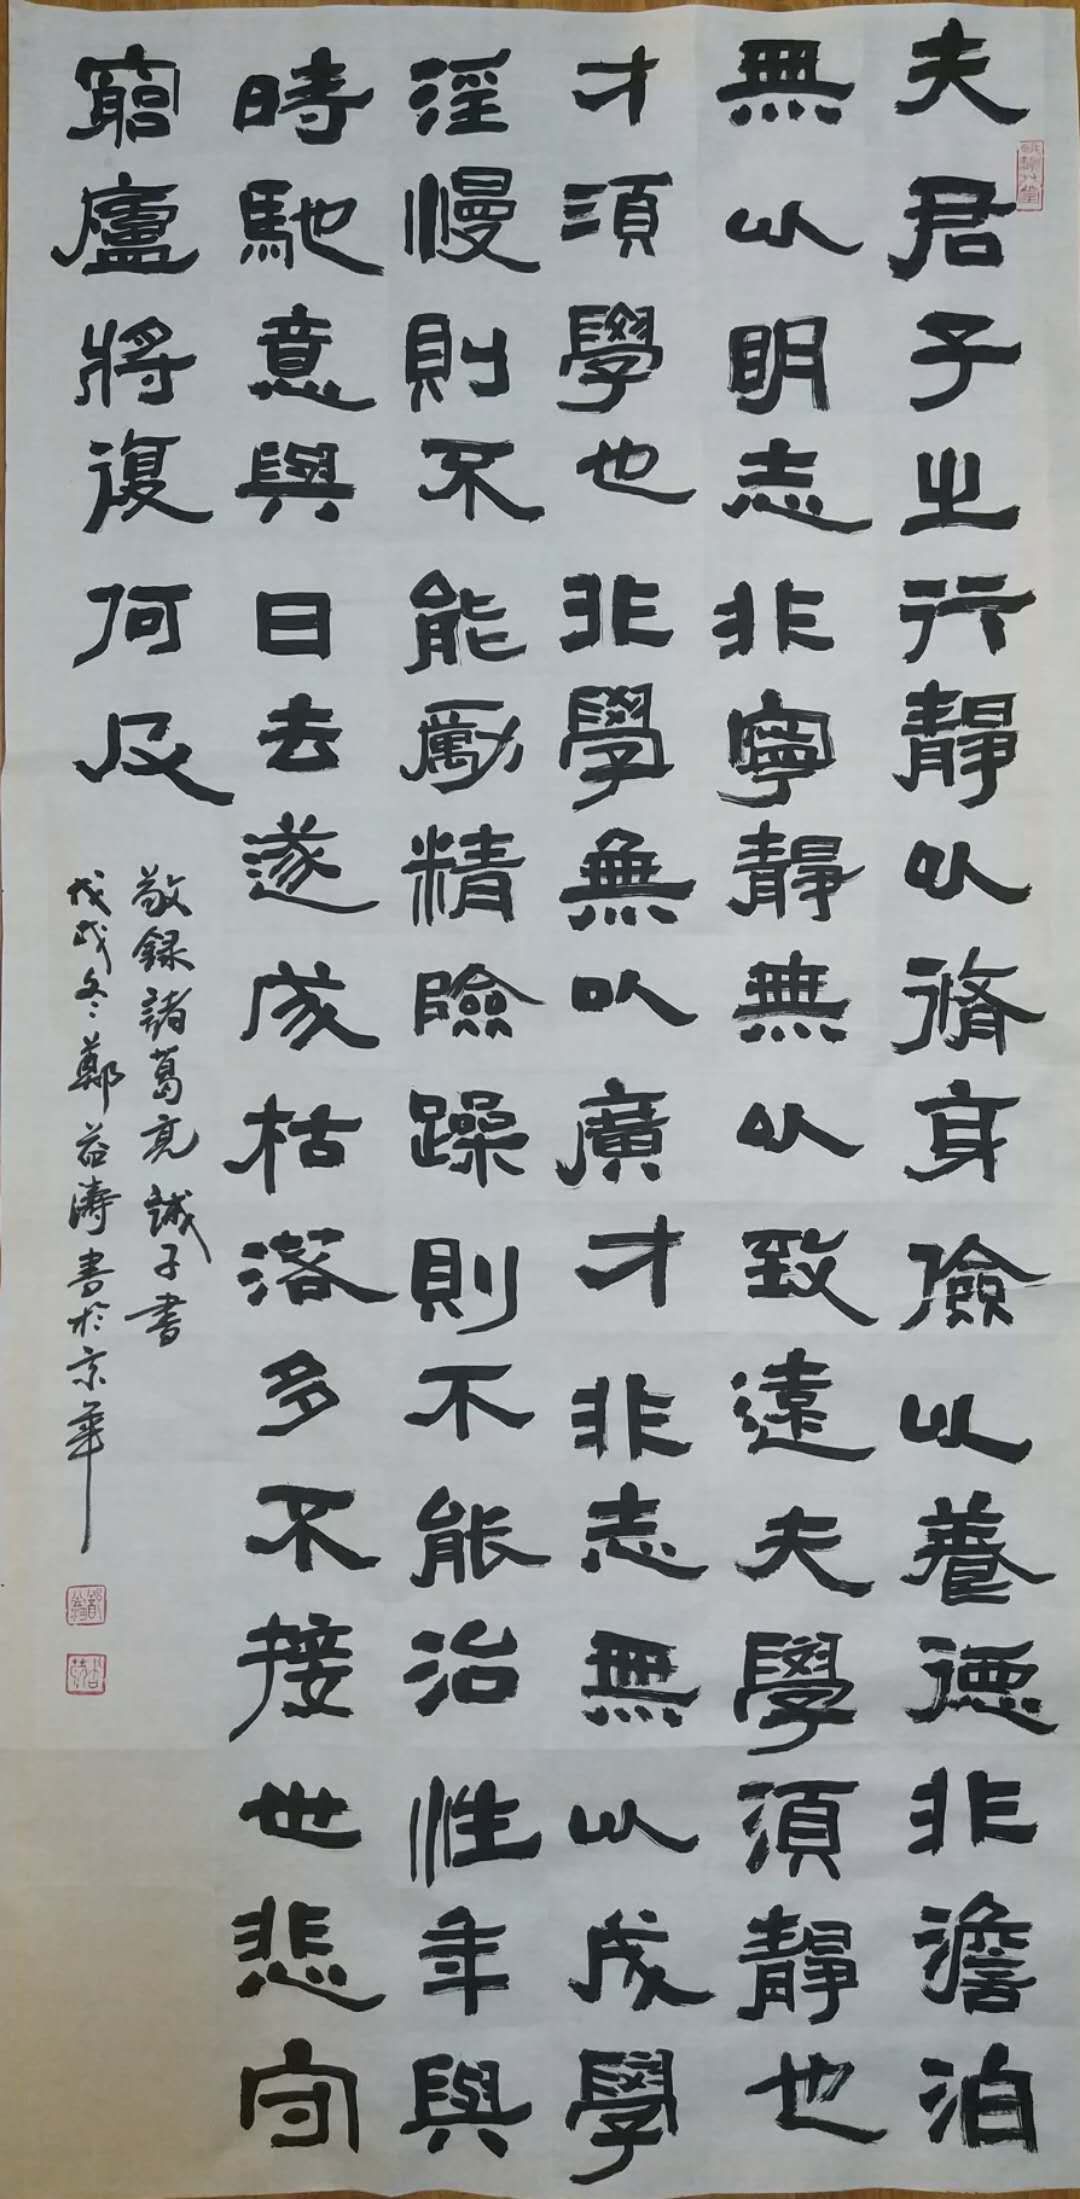 夫君子之行靜以脩身儉以養德非澹泊
無以明志非寧靜無以致遠夫學須靜也
才須學也非學無以廣才非志無以成學
淫慢則不能勵精險躁則不能治性年與
時馳意與日去遂成枯落多不接世悲守
窮廬將復何及
敬録諸葛亮誡子書
戊戌冬鄭益濤書於京華